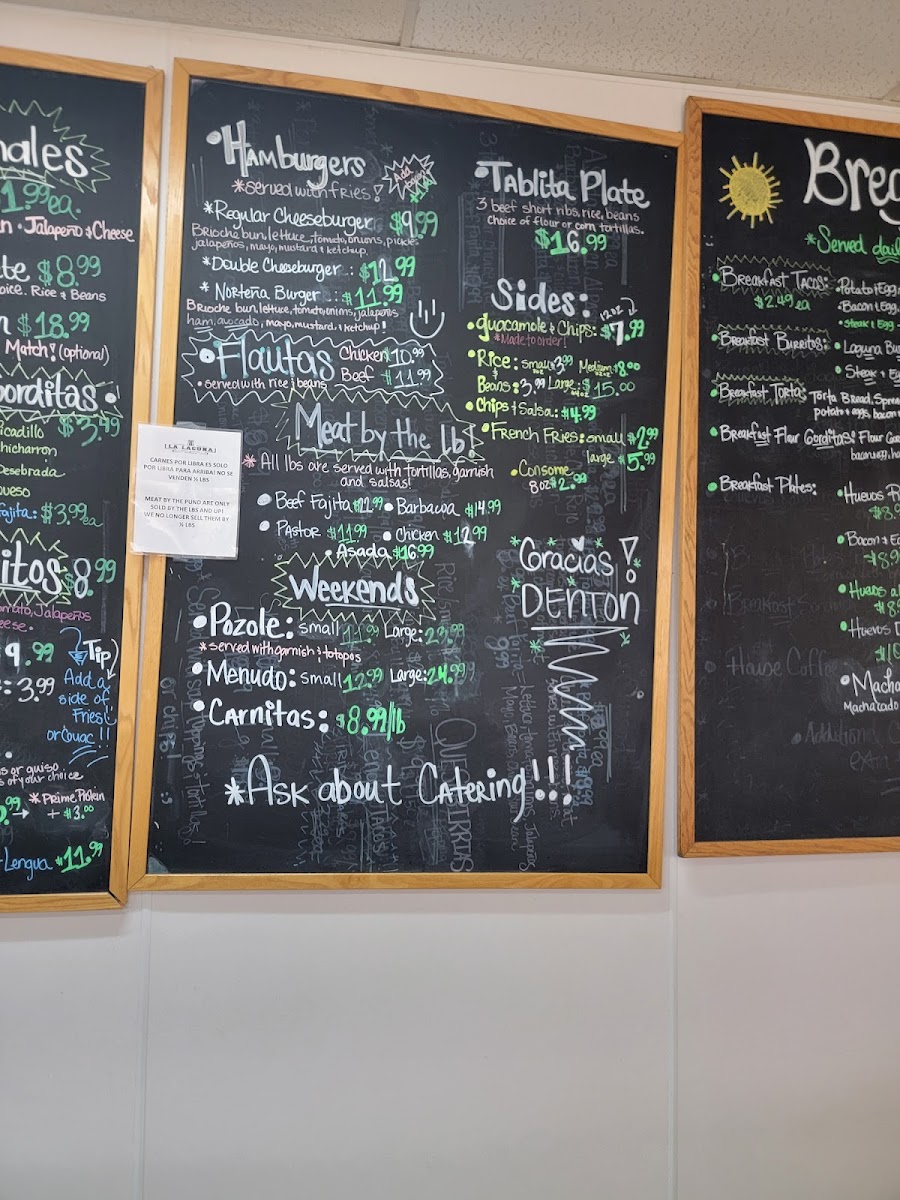 nales
1.99 ea.
Jalapeño & Cheese
te $8.99
oice. Rice & Beans
$18.99
Match! (optional)
orditas
Picadillo $3.49
hicharron
Desebrada
queso
Fajita: $3.99ea
itos $8.99
Jalapeños
eese.
9.99
3.99
Tip
Add a
side of
Fries!
or Guac!!
s or guiso
s of your choice
* Prime Protein
+ $3.00
Lengua $11.99
LA LAGUNA
CARNES POR LIBRA ES SOLO
POR LIBRA PARA ARRIBA! NO SE
VENDEN ½ LBS
MEAT BY THE PUND ARE ONLY
SOLD BY THE LBS AND UP!
WE NO LONGER SELL THEM BY
½ LBS
• Hamburgers
* served with fries!
* Regular Cheeseburger $9.99
Brioche bun, lettuce, tomato, onions, pickles
jalapeños, mayo, mustard & ketchup
* Double Cheeseburger: $12.99
* Norteña Burger: $11.99
Brioche bun, lettuce, tomato, onions, jalapeños
ham, avocado, mayo, mustard & ketchup!
• Flautas Chicken $10.99
Beef $11.99
• served with rice & beans
Meat by the lb!
* All lbs are served with tortillas, garnish
and salsas!
• Beef Fajita $11.99 • Barbacoa $14.99
• Pastor $11.99 • Chicken $12.99
• Asada $16.99
Weekends
• Pozole: Small 11.99 Large: 23.99
* served with garnish & totopos
• Menudo: Small 12.99 Large: 24.99
• Carnitas: $8.99/lb
*Ask about Catering!!!
• Tablita Plate
3 beef short ribs, rice, beans
choice of flour or corn tortillas.
$16.99
Sides:
12oz
• Guacamole & Chips: $7.99
*Made to order!
• Rice: small 3.99 Medium $8.00
&
Beans: 3.99 Large $15.00
• Chips & Salsa: $4.99
• French Fries: small $2.99
large $5.99
• Consome
8oz $2.99
Gracias!
DENTON
Brea
*Served daily
• Breakfast Tacos:
$2.49 ea
• Potato & Egg
• Bacon & Egg
• Steak & Egg
• Breakfast Burritos:
• Laguna Bu
• Steak & Eg
• Breakfast Tortas
Torta Bread, Spre
potato & eggs, bacon
• Breakfast Flour Gorditas: Flour Go
• Breakfast Plates:
• Huevos
$8.9
• Bacon & Eg
$8.9
• Huevos
$8.9
• Huevos
• Macha
Machacado
House Coffee